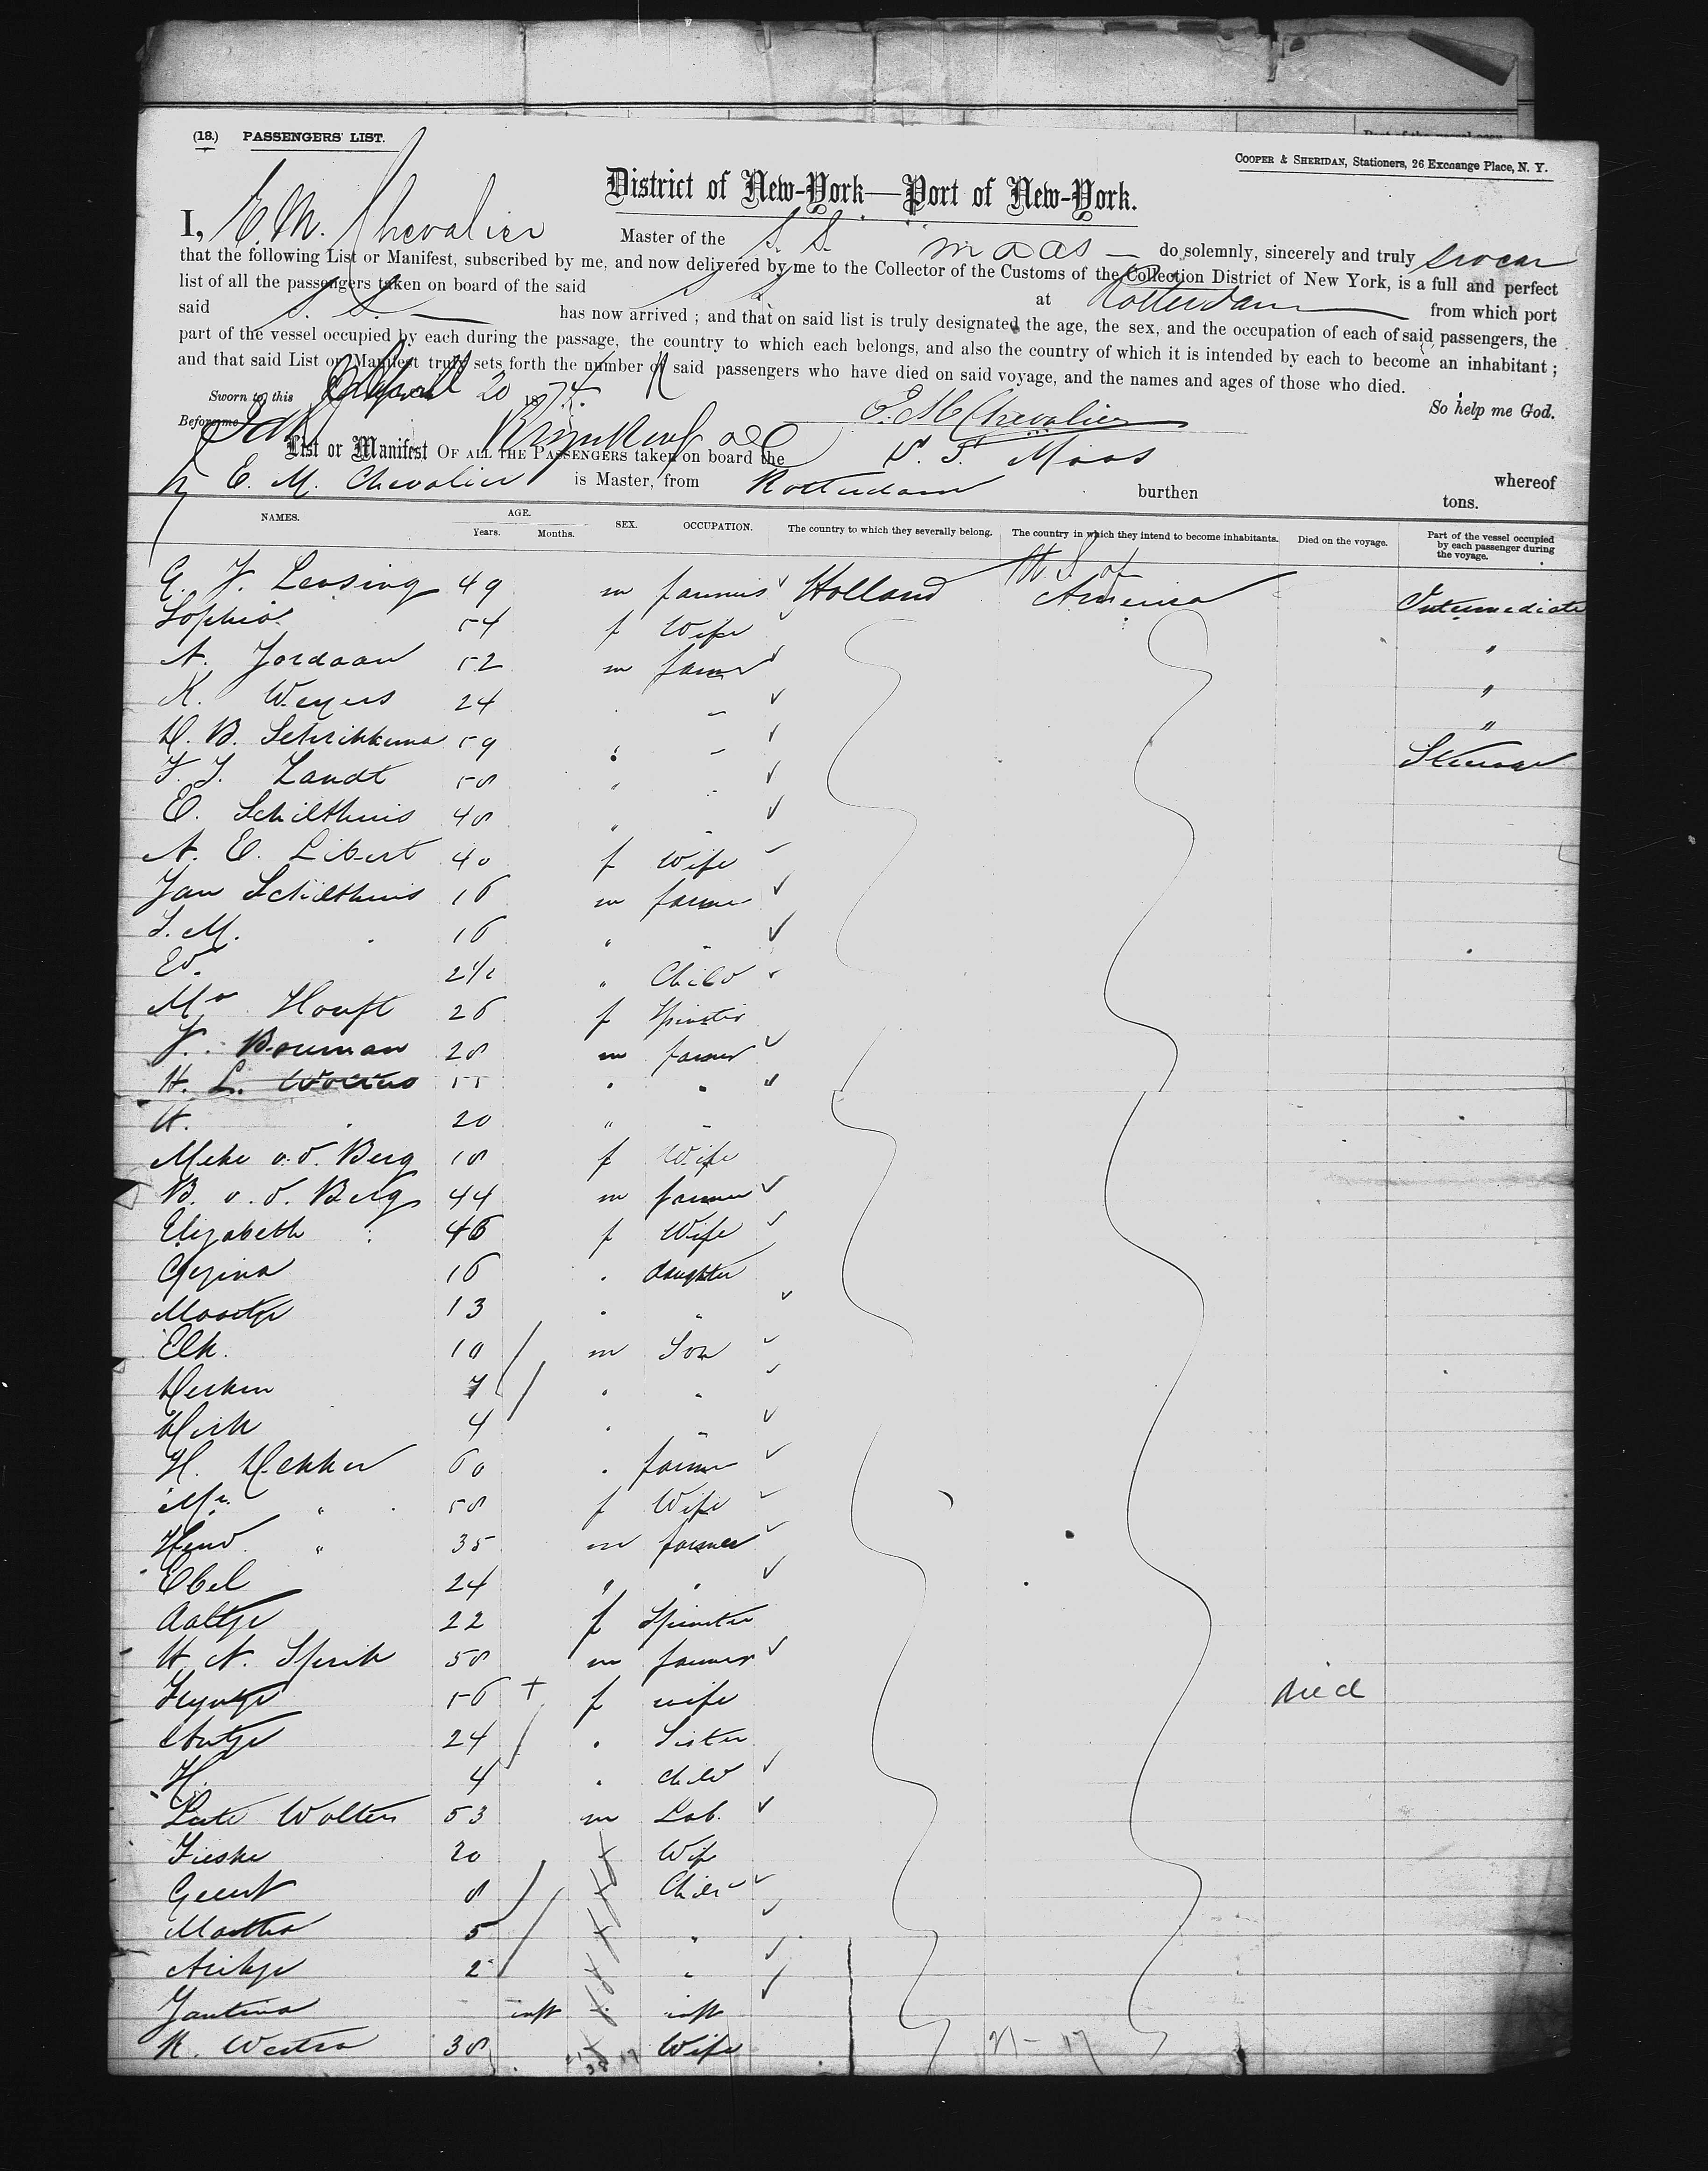 (18.) PASSENGERS' LIST.
COOPER & SHERIDAN, Stationers, 26 Exchange Place, N. Y.
District of New-York—Port of New-York.
I, E. M. Chevalier Master of the S. S. Maas — do solemnly, sincerely and truly swear
that the following List or Manifest, subscribed by me, and now delivered by me to the Collector of the Customs of the Collection District of New York, is a full and perfect
list of all the passengers taken on board of the said S. S. at Rotterdam from which port
said S. S. — has now arrived ; and that on said list is truly designated the age, the sex, and the occupation of each of said passengers, the
part of the vessel occupied by each during the passage, the country to which each belongs, and also the country of which it is intended by each to become an inhabitant ;
and that said List or Manifest truly sets forth the number of said passengers who have died on said voyage, and the names and ages of those who died.
So help me God.
Sworn to this April 20 187
Before me
E. M. Chevalier
List or Manifest OF ALL THE PASSENGERS taken on board the S. S. Maas whereof
E. M. Chevalier is Master, from Rotterdam burthen tons.
NAMES. AGE. Years. Months. SEX. OCCUPATION. The country to which they severally belong. The country in which they intend to become inhabitants. Died on the voyage. Part of the vessel occupied by each passenger during the voyage.
G. J. Lensing 49 m farmer Holland U. S. of America Intermediate
Sophia 54 f Wife "
A. Jordaan 52 m farmer "
K. Weyers 24 "
D. B. Schrikkema 59 Steerage
J. J. Landt 58 "
E. Schilthuis 48 "
A. E. Libert 40 f Wife
Jan Schilthuis 16 m farmer
J. M. 16 "
Ed. 2 1/2 " Child
Ma Hooft 26 f Spinster
J. Bouman 28 m farmer
H. L. Wolters 55
H. 20 "
Meke v. d. Berg 18 f Wife
B. v. d. Berg 44 m farmer
Elizabeth 46 f Wife
Gezina 16 daughter
Maartje 13
Elk. 10 m Son
Derken 7
Dirk 4
H. Dekker 60 farmer
Ma " 58 f Wife
Hend. " 35 m farmer
Ebel 24 "
Aaltje 22 f Spinster
H. N. Sperik 58 m farmer
Fryntje 56 + f wife died
Antje 24 Sister
H. 4 child
Lute Wolters 53 m Lab.
Fieske 20 Wife
Geert 8 Child
Martha 5 "
Arikje 2 "
Jantina inft inft
K. Westra 38 Wife
21 — 17